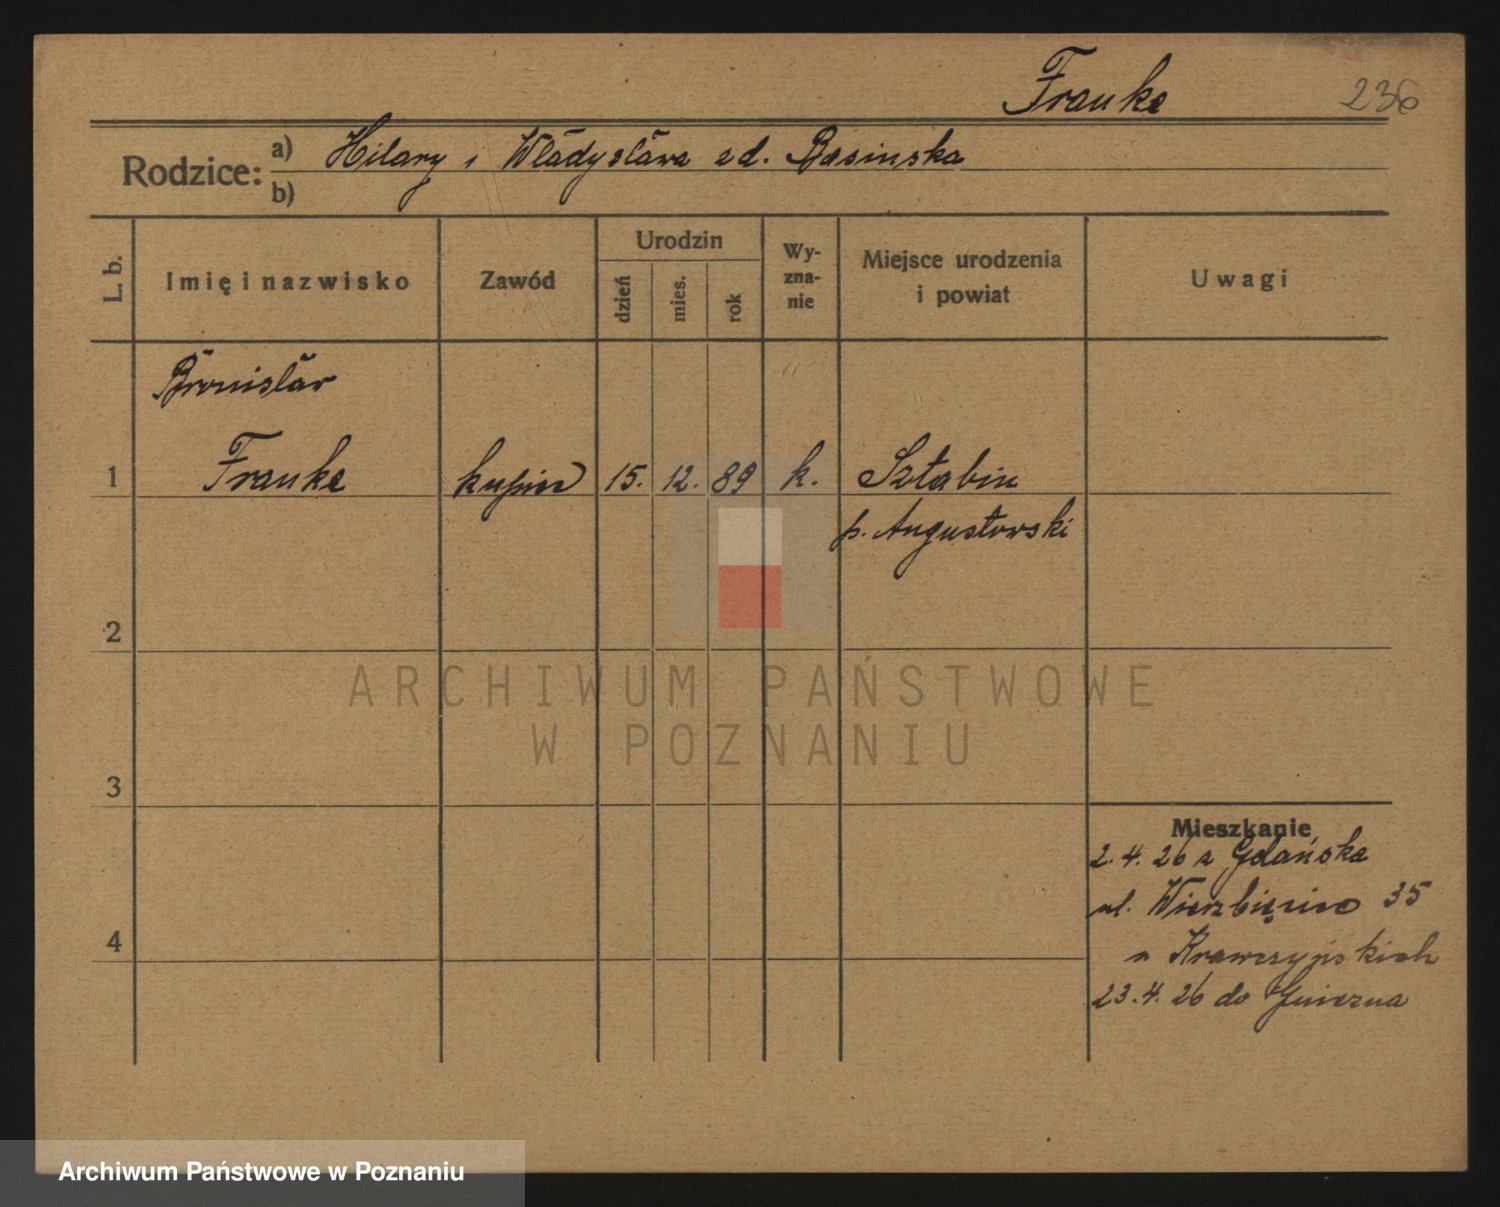 Franke 236
Rodzice: a) Hilary i Władysława z d. Basinska
b)
L. b. Imię i nazwisko Zawód Urodzin dzień mies. rok Wy-zna-nie Miejsce urodzenia i powiat Uwagi
Bronisław
1 Franke kupiec 15. 12. 89 k. Sztabin
p. Augustowski
2
ARCHIWUM PAŃSTWOWE
W POZNANIU
3
Mieszkanie
2.4.26 z Gdańska
ul. Wierzbięcice 35
4
u Krawczyńskich
23.4.26 do Gniezna
Archiwum Państwowe w Poznaniu